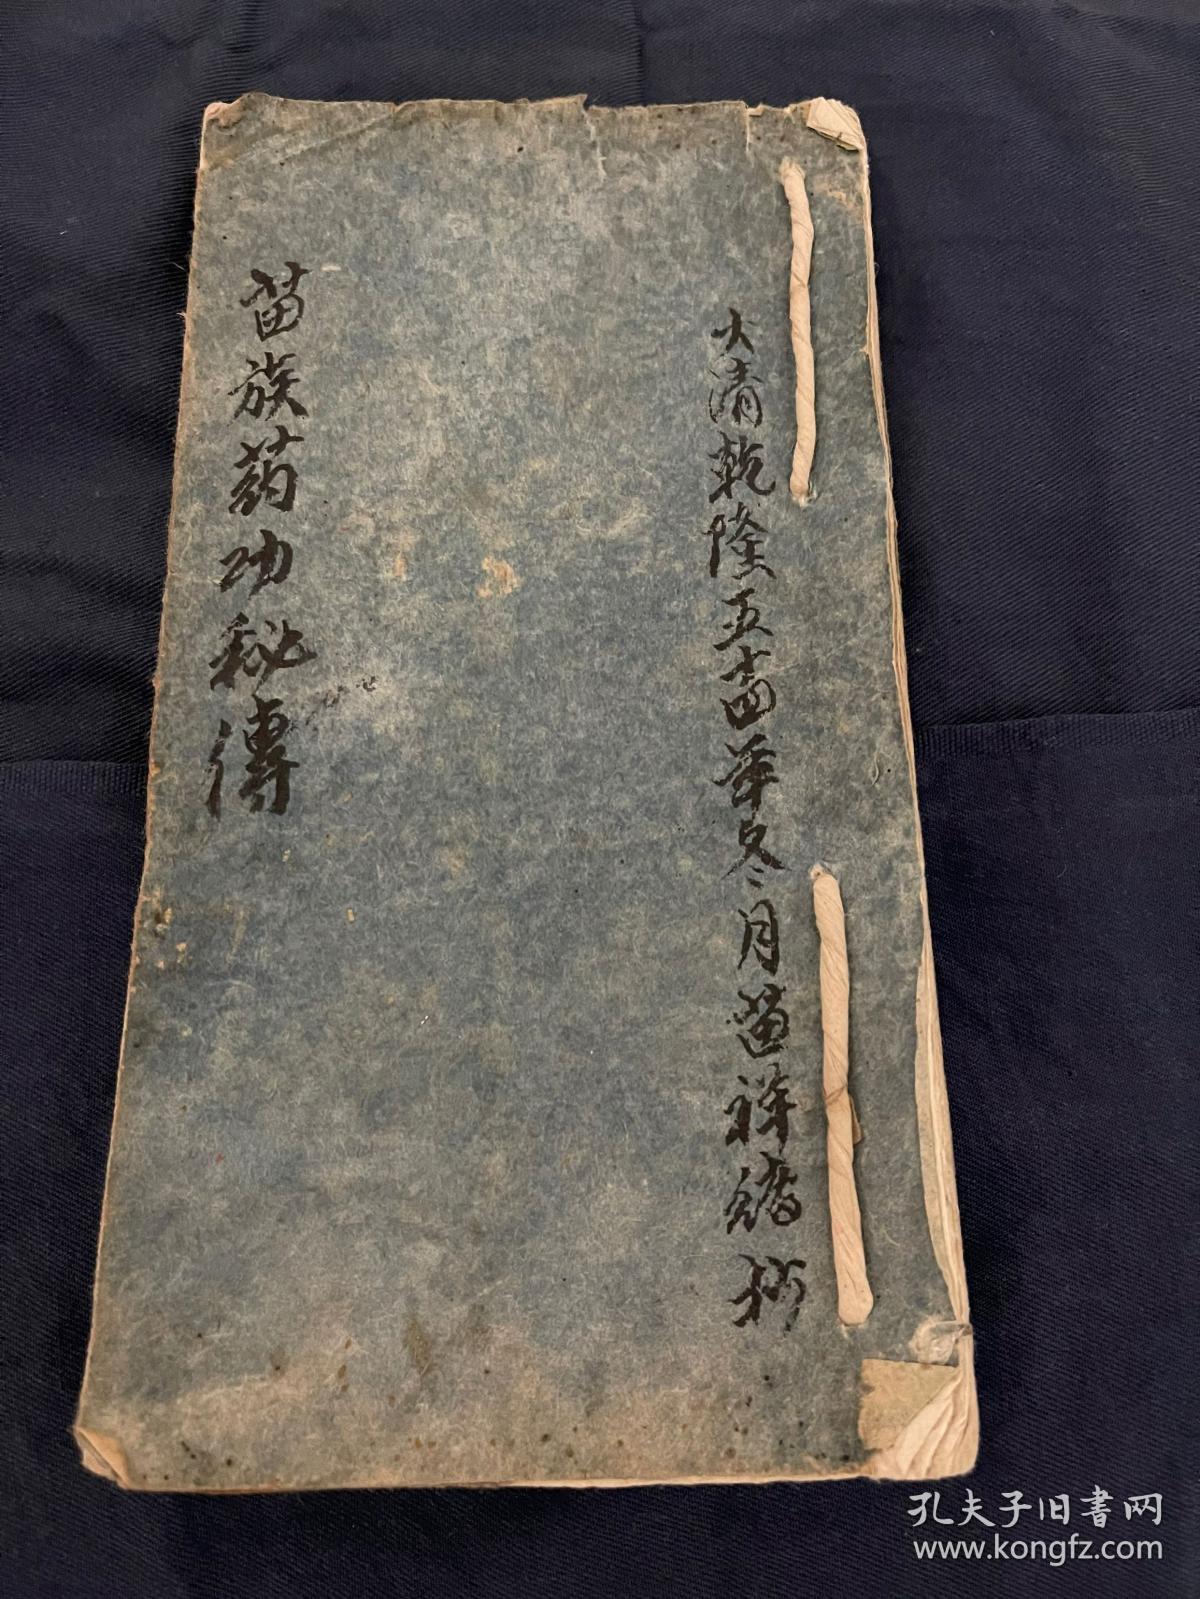 大清乾隆五十四年冬月祥抄
苗族葯功秘傳
孔夫子旧书网
www.kongfz.com